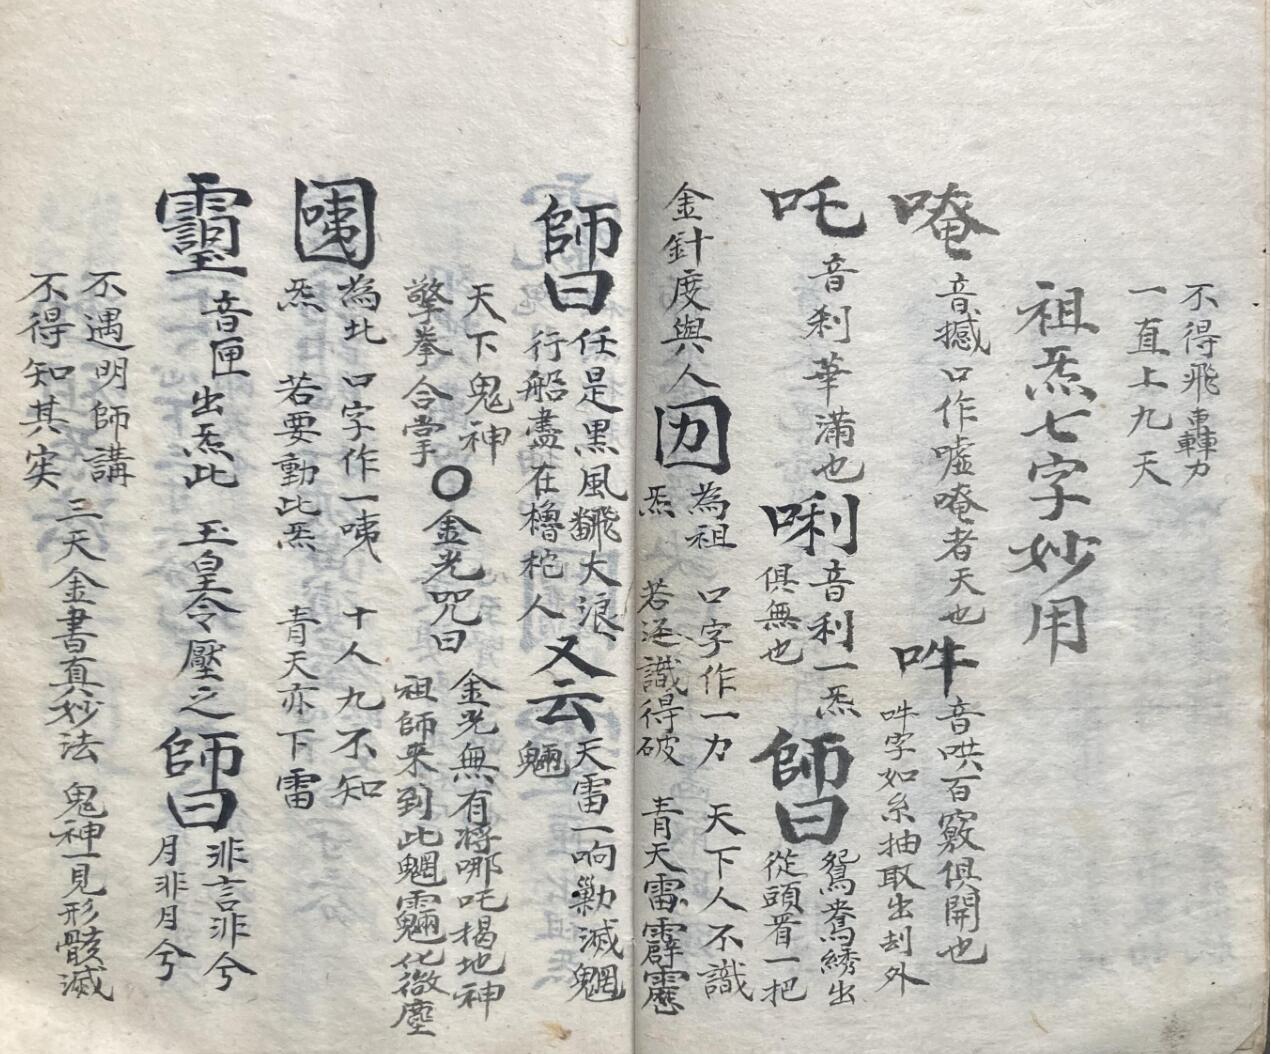 不得飛轟力
一直上九天
祖炁七字妙用
唵
音撼口作噓唵者天也
吽
音哄百竅俱開也
吽字如糸抽取出刦外
吒
音剎華滿也
唎
音利一炁
俱無也
師曰
鴛鴦綉出
從頭看一把
金針度與人
為祖
炁
口字作一力
若还識得破
天下人不識
青天雷霹靂
師曰
任是黑風飜大浪
行船盡在櫓柁人
又云
天雷一响勦滅魍
魎
天下鬼神
擎拳合掌
〇金光咒曰
金光無有將哪吒揭地神
祖師來到此魍魎化微塵
為此
炁
口字作一咦
若要動此炁
十人九不知
青天亦下雷
音匣出炁此玉皇令壓之
師曰
非言非兮
月非月兮
不遇明師講
不得知其实
三天金書真妙法鬼神一見形骸滅